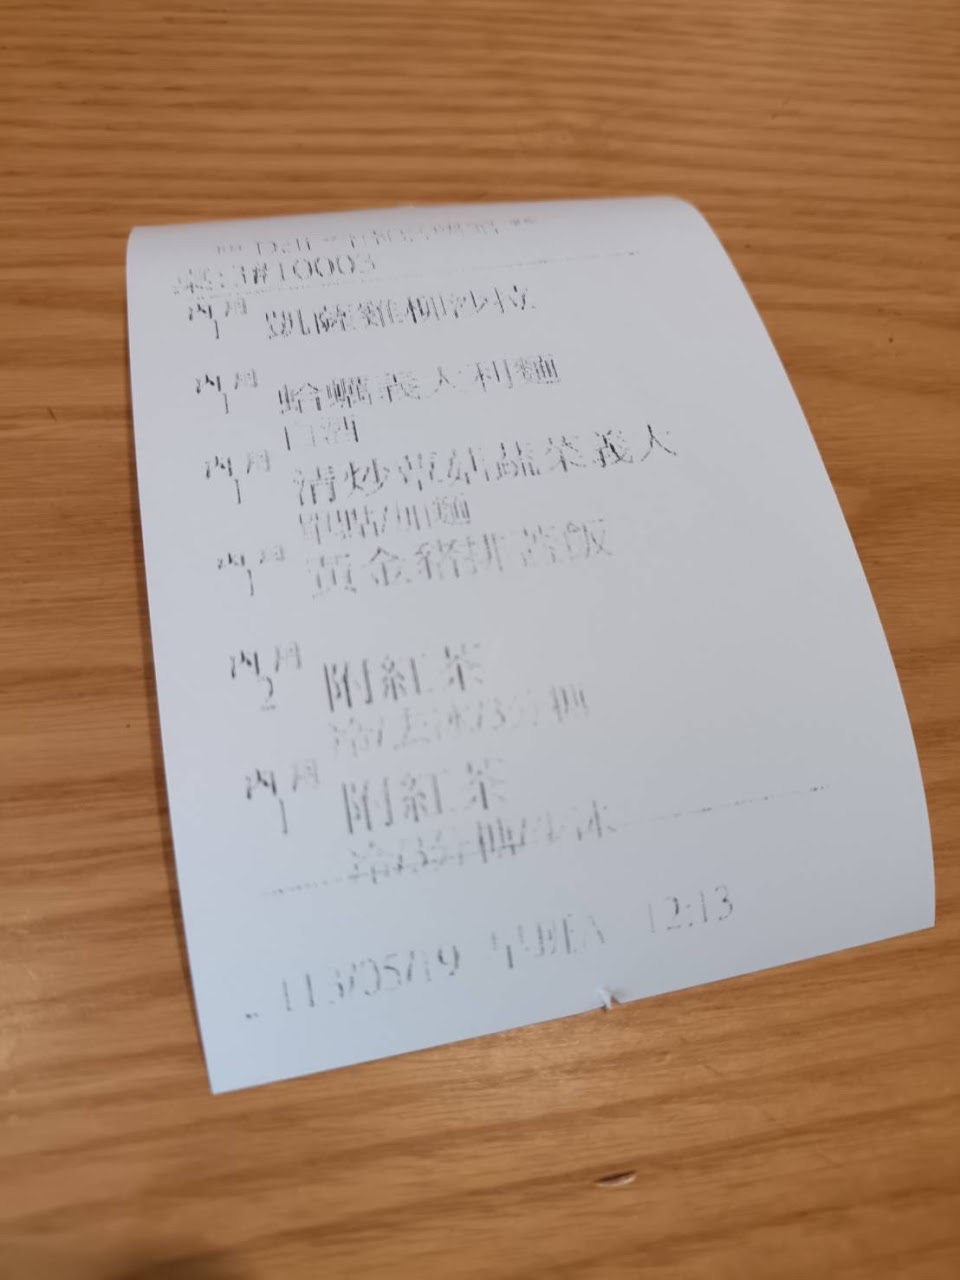 桌:3#10003
內用 凱薩雞柳沙拉
1
內用 蛤蠣義大利麵
1 白酒
內用 清炒草菇蔬菜義大
1 單點/加麵
內用 黃金豬排蓋飯
1
內用 附紅茶
2 冷/去冰/3分糖
內用 附紅茶
1 冷/3分糖/少冰
113/05/19 早班EA 12:13